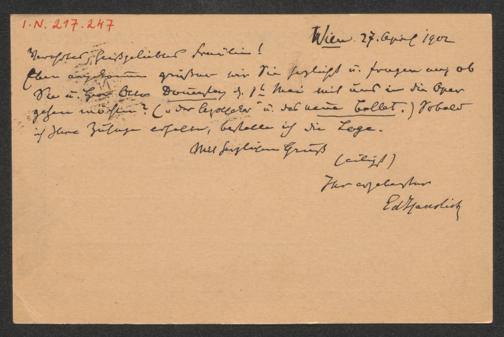 I.N. 217.247
Wien 27. April 1902
Verehrtes, heißgeliebtes Fräulein!
Eben angekommen grüßen wir Sie herzlichst u. fragen an, ob
Sie u. Donnerstag d. 1t Mai mit uns in die Oper
gehen möchten? („der Apotheker" u. das neue Ballet.) Sobald
ich Ihre Zusage erhalten, bestelle ich die Loge.
Mit herzlichem Gruß
(eiligst)
Ihr ergebenster
Ed Hanslick